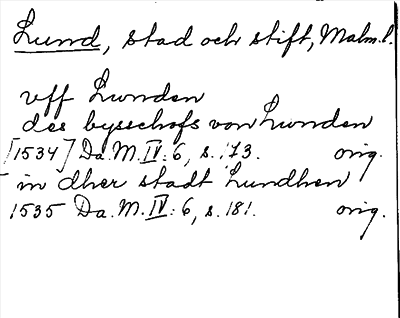 Lund, stad och stift, Malm.l.
uff Lunden
des bysschofs von Lunden
[1534] Da. M. IV: 6, s. 173. orig.
in dher stadt Lundhen
1535 Da. M. IV: 6, s. 181. orig.